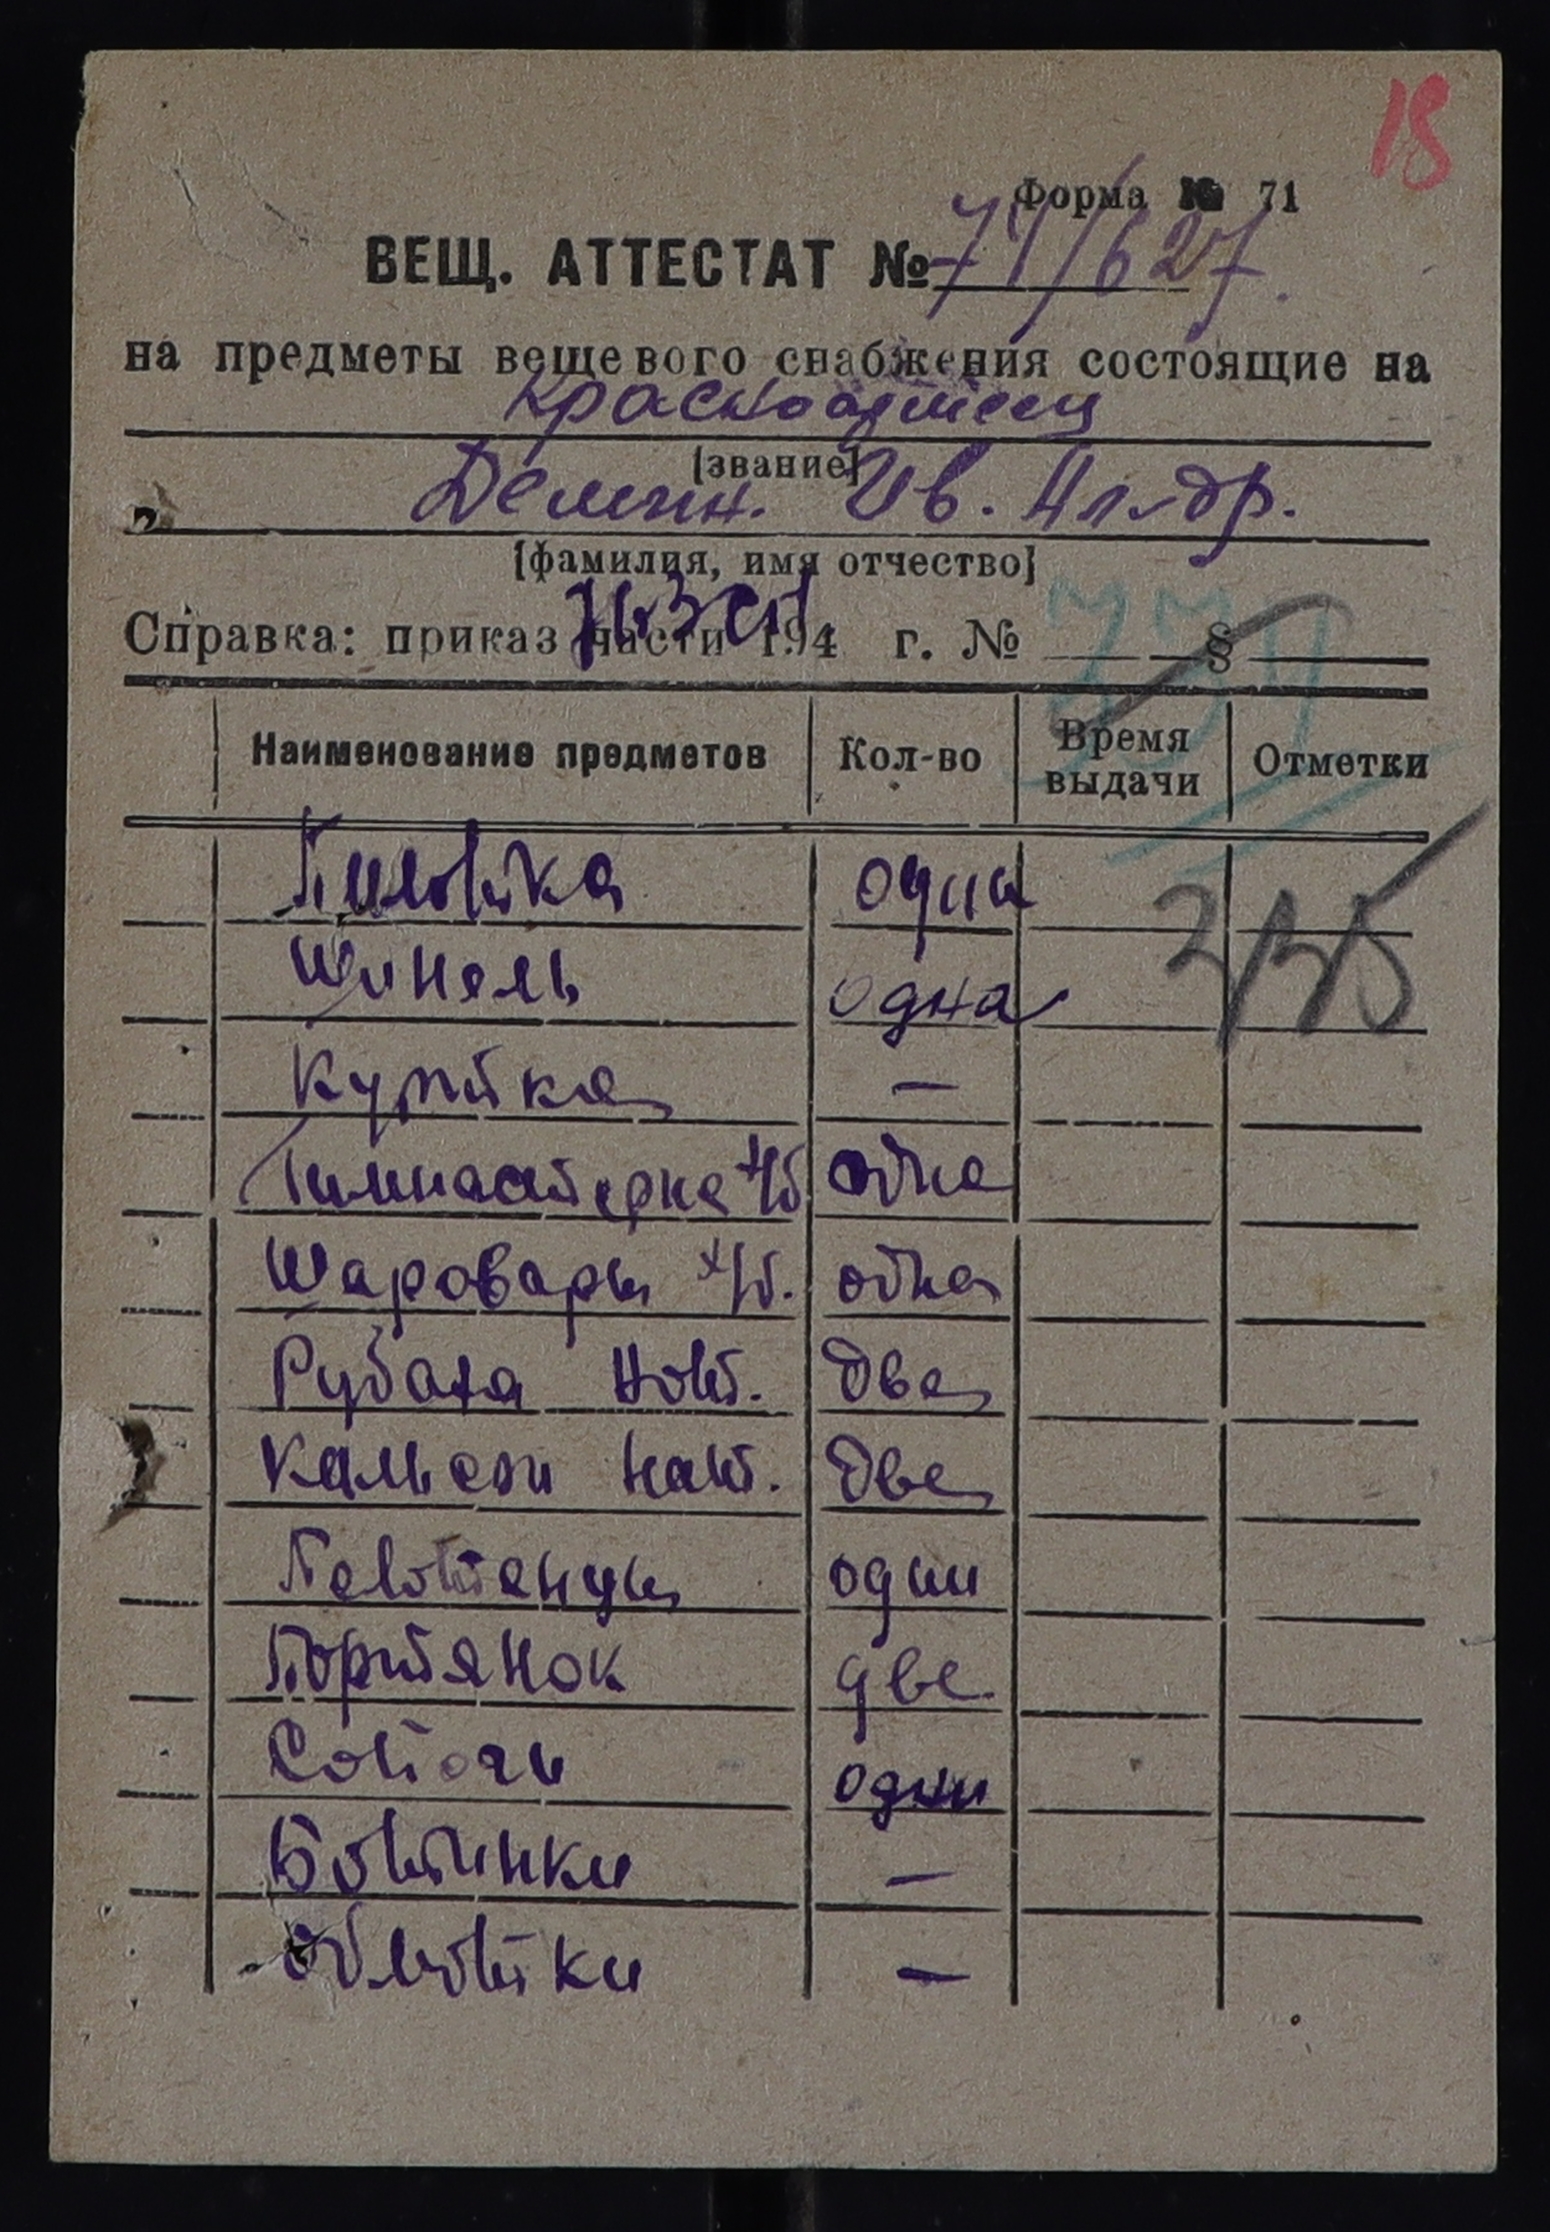 18
Форма № 71
ВЕЩ. АТТЕСТАТ № 71/627.
на предметы вещевого снабжения состоящие на
Красноармеец
[звание]
Демин. Ив. Ал-др.
[фамилия, имя отчество]
Справка: приказ части 194 г. № §
Наименование предметов Кол-во Время выдачи Отметки
Пилотка одна
Шинель одна
Куртка —
Гимнастерка х/б одна
Шаровары х/б. одна
Рубаха нат. две
Кальсон нат. две
один
Портянок две
Сапоги одни
Ботинки —
Обмотки —